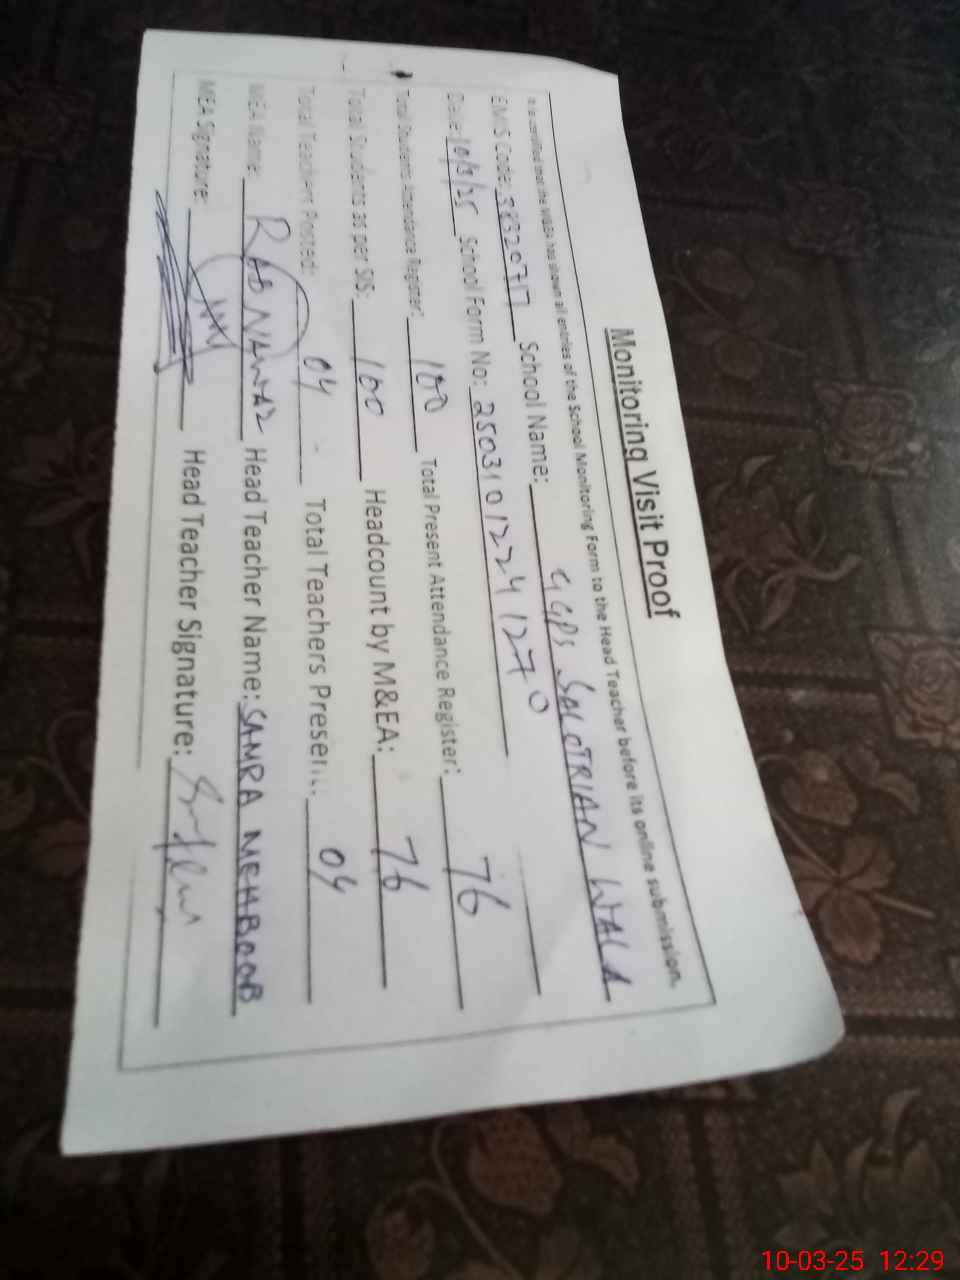 Monitoring Visit Proof
It is certified that the MEA has shown all entries of the School Monitoring Form to the Head Teacher before its online submission.
EMIS Code: 38320717 School Name: GGPS SALOTRIAN WALA
Date: 10/3/25 School Form No: 2503101224 1270
Total Students Attendance Register: 100 Total Present Attendance Register: 76
Total Students as per SIS: 100 Headcount by M&EA: 76
Total Teachers Posted: 04 Total Teachers Present: 04
MEA Name: RAB NAWAZ Head Teacher Name: SAMRA MEHBOOB
MEA Signature: Head Teacher Signature:
10-03-25 12:29